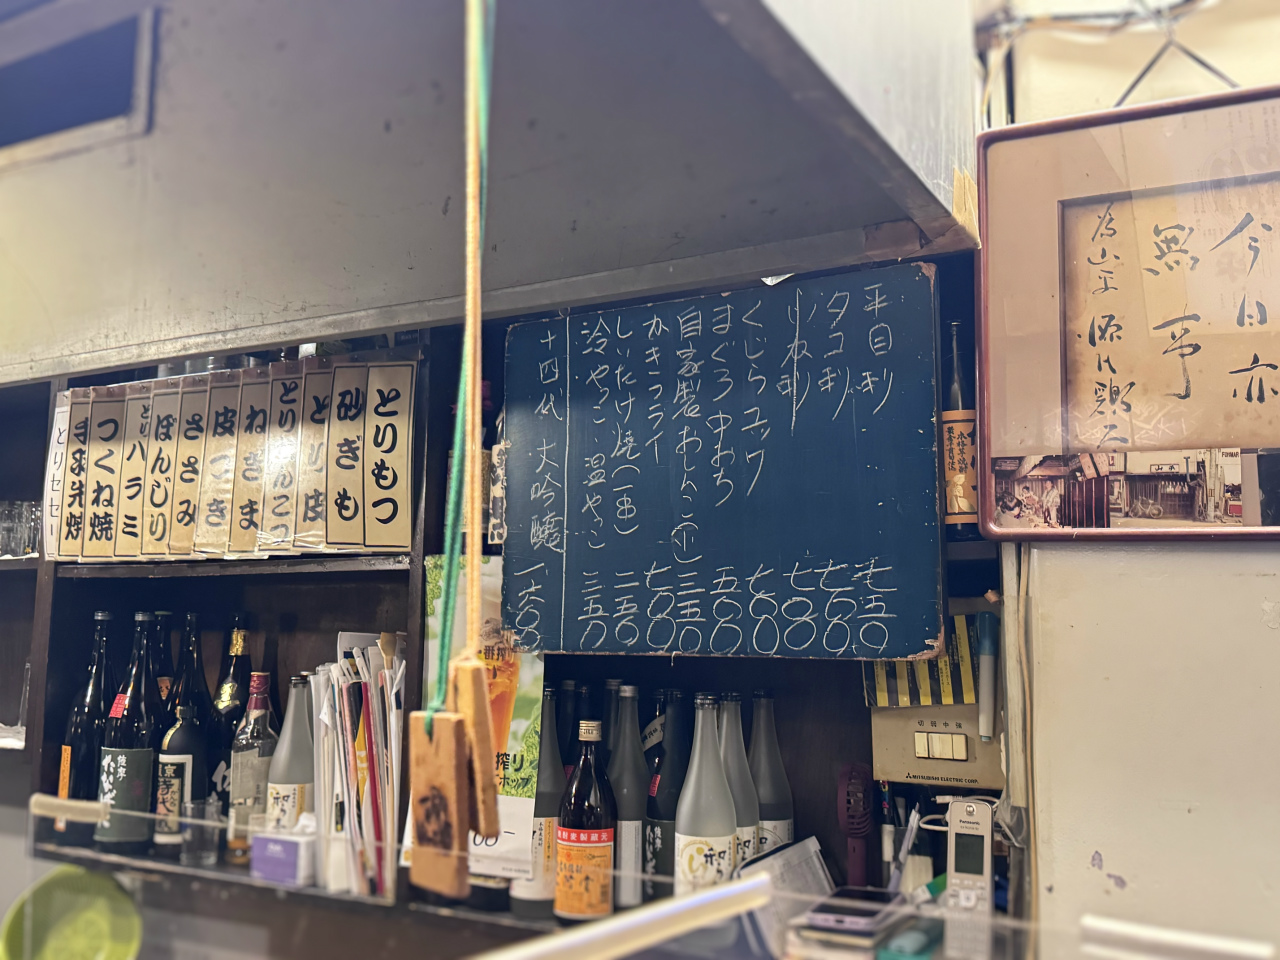 今日亦
無事
為山平
源氏鶏太
平目刺 七五〇
タコ刺 七五〇
〆さば刺 七〇〇
くじらユッケ 七〇〇
まぐろ中おち 五〇〇
自家製おしんこ(小) 三五〇
かきフライ 七〇〇
しいたけ焼(一串) 二五〇
冷やっこ、温やっこ 三五〇
十四代 大吟醸 一、六〇〇
とりもつ
砂ぎも
とり皮
とりなんこつ
ねぎま
皮つき
ささみ
ぼんじり
とりハラミ
つくね焼
手羽先焼
とりセセリ
切 弱 中 強
MITSUBISHI ELECTRIC CORP.
Panasonic
搾り
ホップ
薩摩